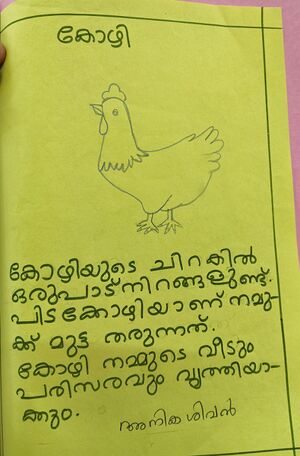 കോഴി
കോഴിയുടെ ചിറകിൽ
ഒരുപാട് നിറങ്ങളുണ്ട്.
പിടക്കോഴിയാണ് നമു-
ക്ക് മുട്ട തരുന്നത്.
കോഴി നമ്മുടെ വീടും
പരിസരവും വൃത്തിയാ-
ക്കും.
അനിക ശിവൻ